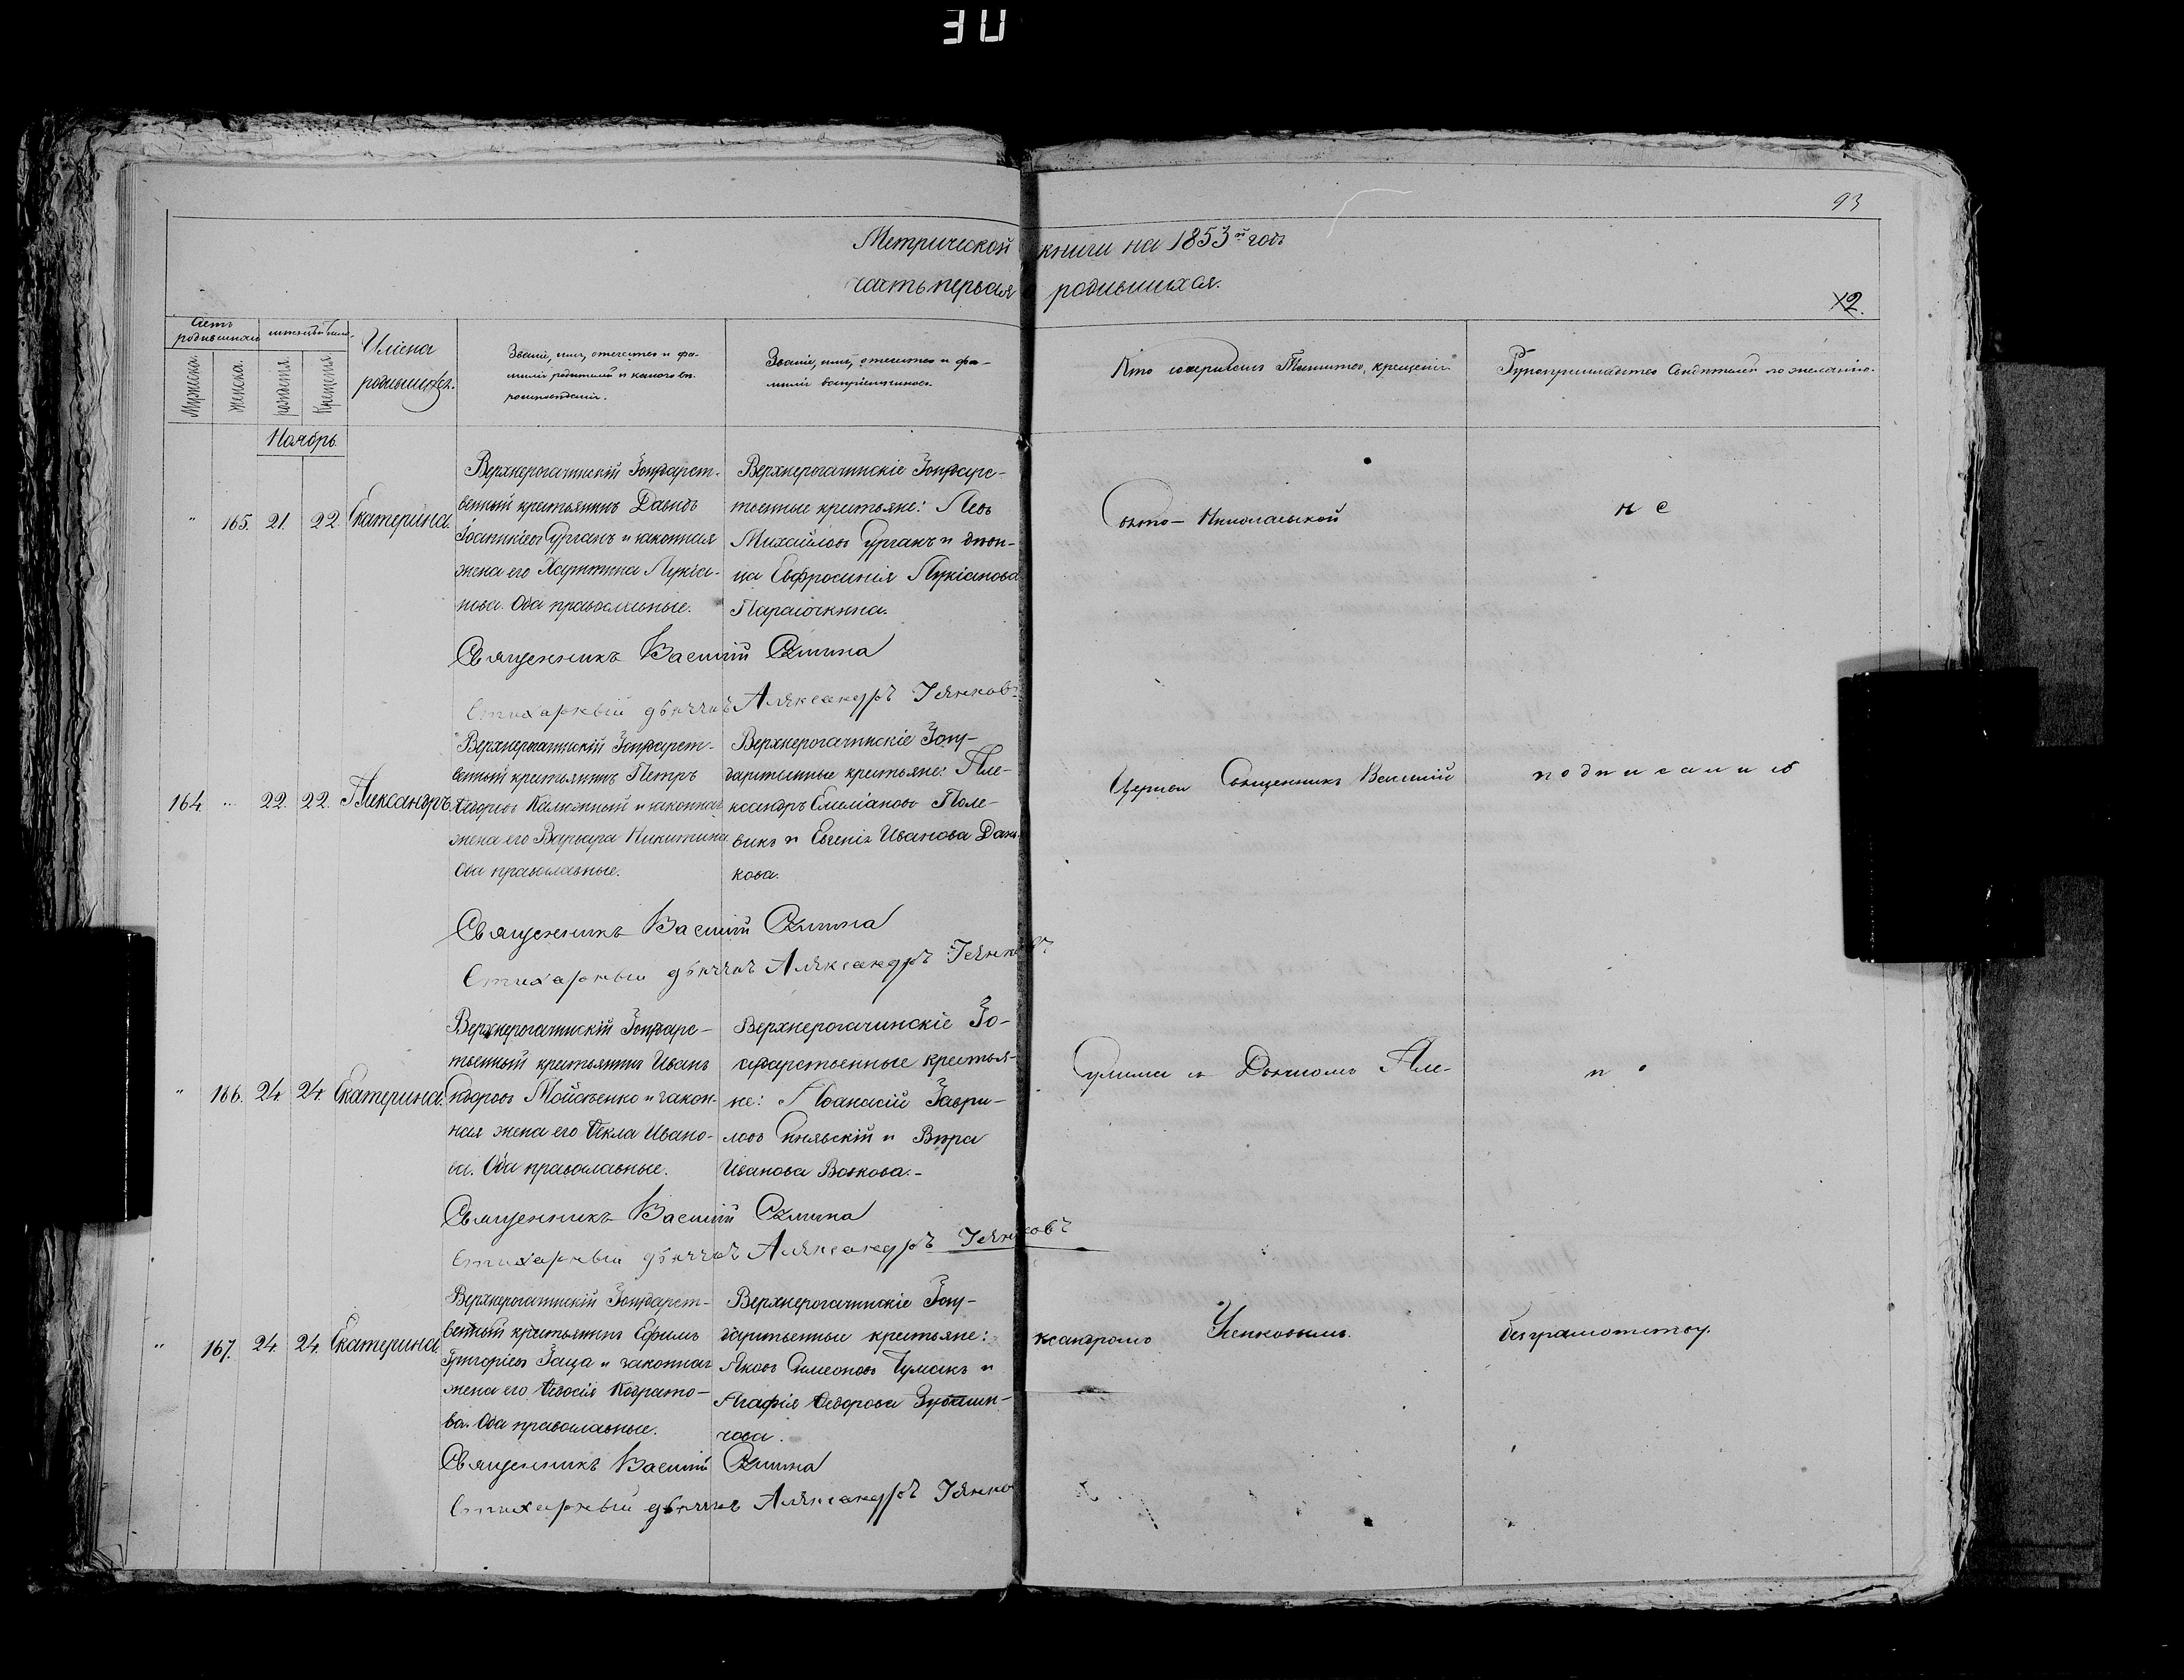 30
93
Метрической книги на 1853й годъ
часть первая родившихся.
12.
Счетъ родившихся
Мужеска
Женска
рожденія
Крещенія
Имена родившихся.
Званіе, имя, отечество и фа-
милія родителей и какого вѣ-
роисповѣданія.
Званіе, имя, отечество и фа-
милія воспріемниковъ.
Кто совершалъ Таинство крещенія
Рукоприкладство Свидѣтелей по желанію.
Ноябрь
" 165. 21. 22. Екатерина.
Верхнерогачинскій Государст-
венный крестьянинъ Давидъ
Іоанникіевъ Курганъ и законная
жена его Харитина Лукіа-
нова. Оба православные.
Верхнерогачинскіе Государс-
твенные крестьяне: Левъ
Михайловъ Курганъ и дѣви-
ца Евфросинія Лукіанова
Парасочкина.
Свято-Николаевской
не
Священникъ Василій Сулима
Стихарный дьячокъ Александръ Усенковъ
164 " 22. 22. Александръ.
Верхнерогачинскій Государст-
венный крестьянинъ Петръ
Ѳедоровъ Калюжный и законная
жена его Варвара Никитина.
Оба православные.
Верхнерогачинскіе Госу-
дарственные крестьяне: Але-
ксандръ Емеліановъ Поле-
викъ и Евгенія Иванова Дань-
кова.
Церкви Священникъ Василій
подписались
Священникъ Василій Сулима
Стихарный дьячокъ Александръ Усенковъ
" 166. 24. 24. Екатерина.
Верхнерогачинскій Государс-
твенный крестьянинъ Иванъ
Ѳедоровъ Мойсѣенко и закон-
ная жена его Ѳекла Ивано-
ва. Оба православные.
Верхнерогачинскіе Го-
сударственные крестья-
не: Аѳанасій Гаври-
ловъ Синявскій и Вѣра
Иванова Волкова.-
Сулима съ Дьячкомъ Але-
п
Священникъ Василій Сулима
Стихарный дьячокъ Александръ Усенковъ
" 167. 24. 24. Екатерина
Верхнерогачинскій Государст-
венный крестьянинъ Ефимъ
Григоріевъ Заяца и законная
жена его Ѳеодосія Кодрато-
ва. Оба православные.
Верхнерогачинскіе Госу-
дарственные крестьяне:
Яковъ Симеоновъ Чумакъ и
Агафія Ѳедорова
чова.
ксандромъ Усенковымъ.
безграмотству.
Священникъ Василій Сулима
Стихарный дьячокъ Александръ Усенко